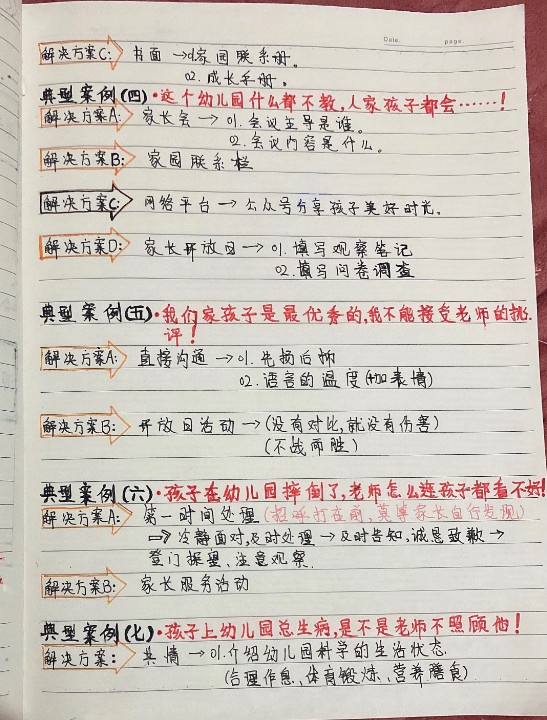 Date. page.
解决方案C: 书面→01.家园联系册。
02.成长手册。
典型案例(四)·这个幼儿园什么都不教,人家孩子都会……!
解决方案A: 家长会→01.会议主导是谁。
02.会议内容是什么。
解决方案B: 家园联系栏
解决方案C: 网络平台→公众号分享孩子美好时光。
解决方案D: 家长开放日→01.填写观察笔记
02.填写问卷调查
典型案例(五)·我们家孩子是最优秀的,我不能接受老师的挑
评!
解决方案A: 直接沟通→01.先扬后抑
02.语言的温度(加表情)
解决方案B: 开放日活动→(没有对比,就没有伤害)
(不战而胜)
典型案例(六)·孩子在幼儿园摔倒了,老师怎么连孩子都看不好!
解决方案A: 第一时间处理(招呼打在前、莫等家长自行发现)
⇒冷静面对,及时处理→及时告知,诚恳致歉→
登门探望、注意观察.
解决方案B: 家长服务活动
典型案例(七)·孩子上幼儿园总生病,是不是老师不照顾他!
解决方案: 共情→01.介绍幼儿园科学的生活状态.
(合理作息、体育锻炼、营养膳食)